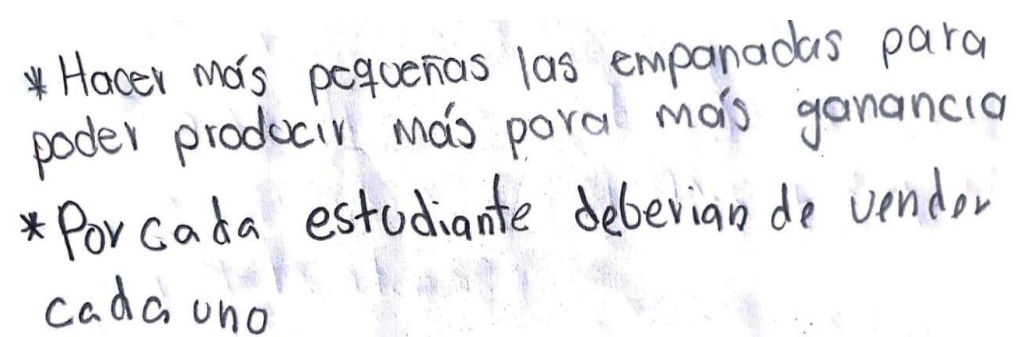 * Hacer más pequeñas las empanadas para
poder producir más para más ganancia
* Por cada estudiante deberian de vender
cada uno